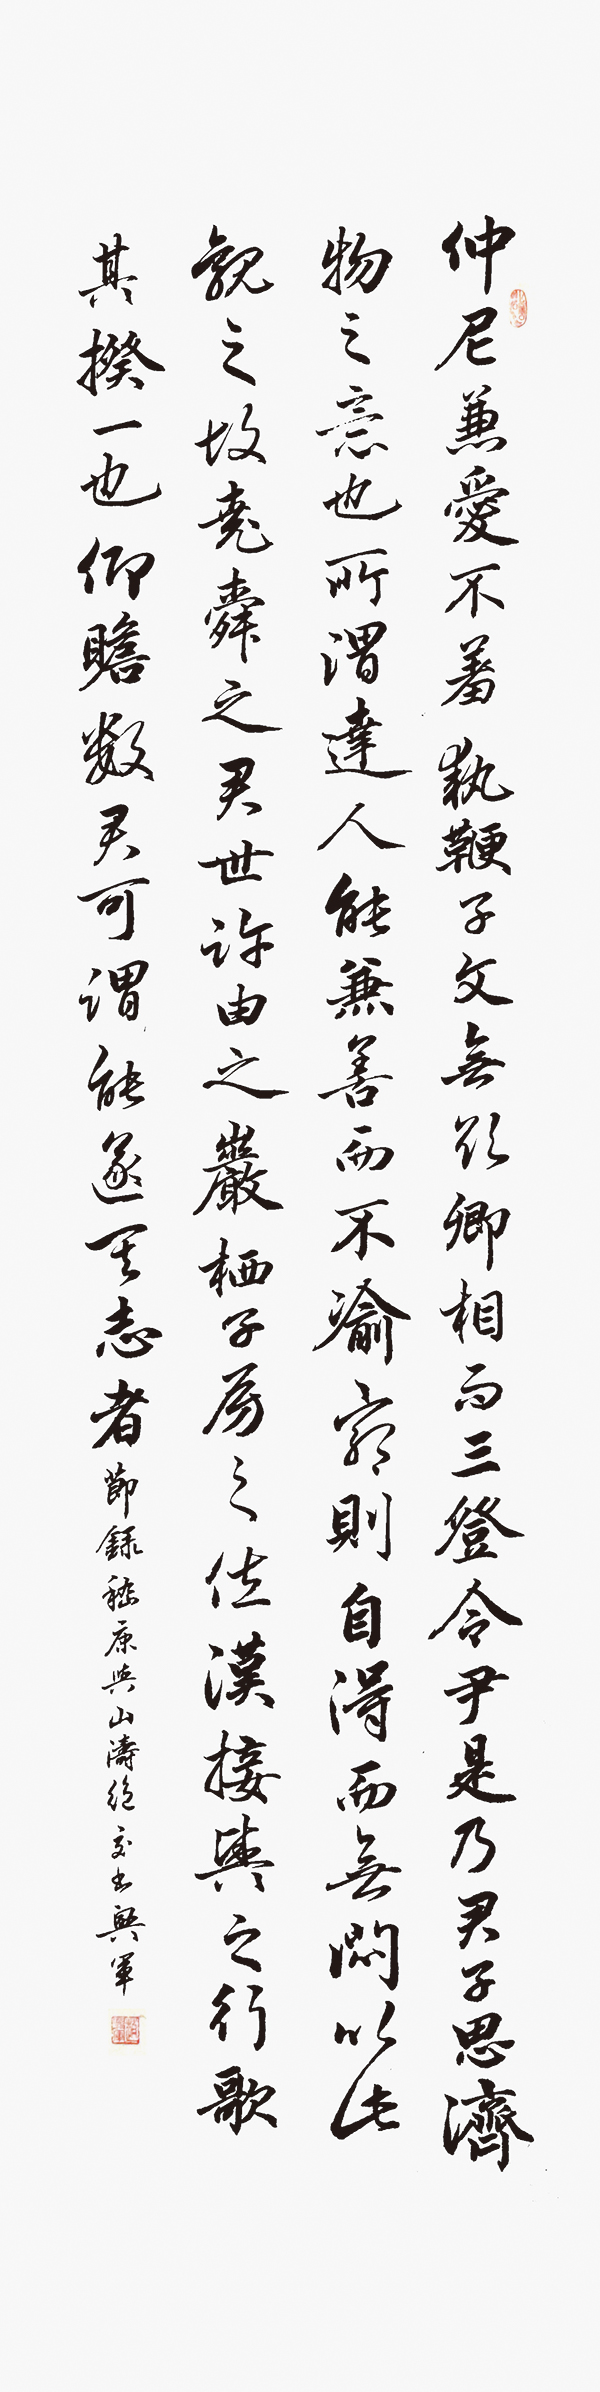 仲尼兼愛不羞執鞭子文無欲卿相而三登令尹是乃君子思濟
物之意也所謂達人能兼善而不渝窮則自得而無悶以此
觀之故堯舜之君世許由之巖栖子房之佐漢接輿之行歌
其揆一也仰瞻数君可謂能遂其志者
節錄嵇康與山濤絕交書興軍